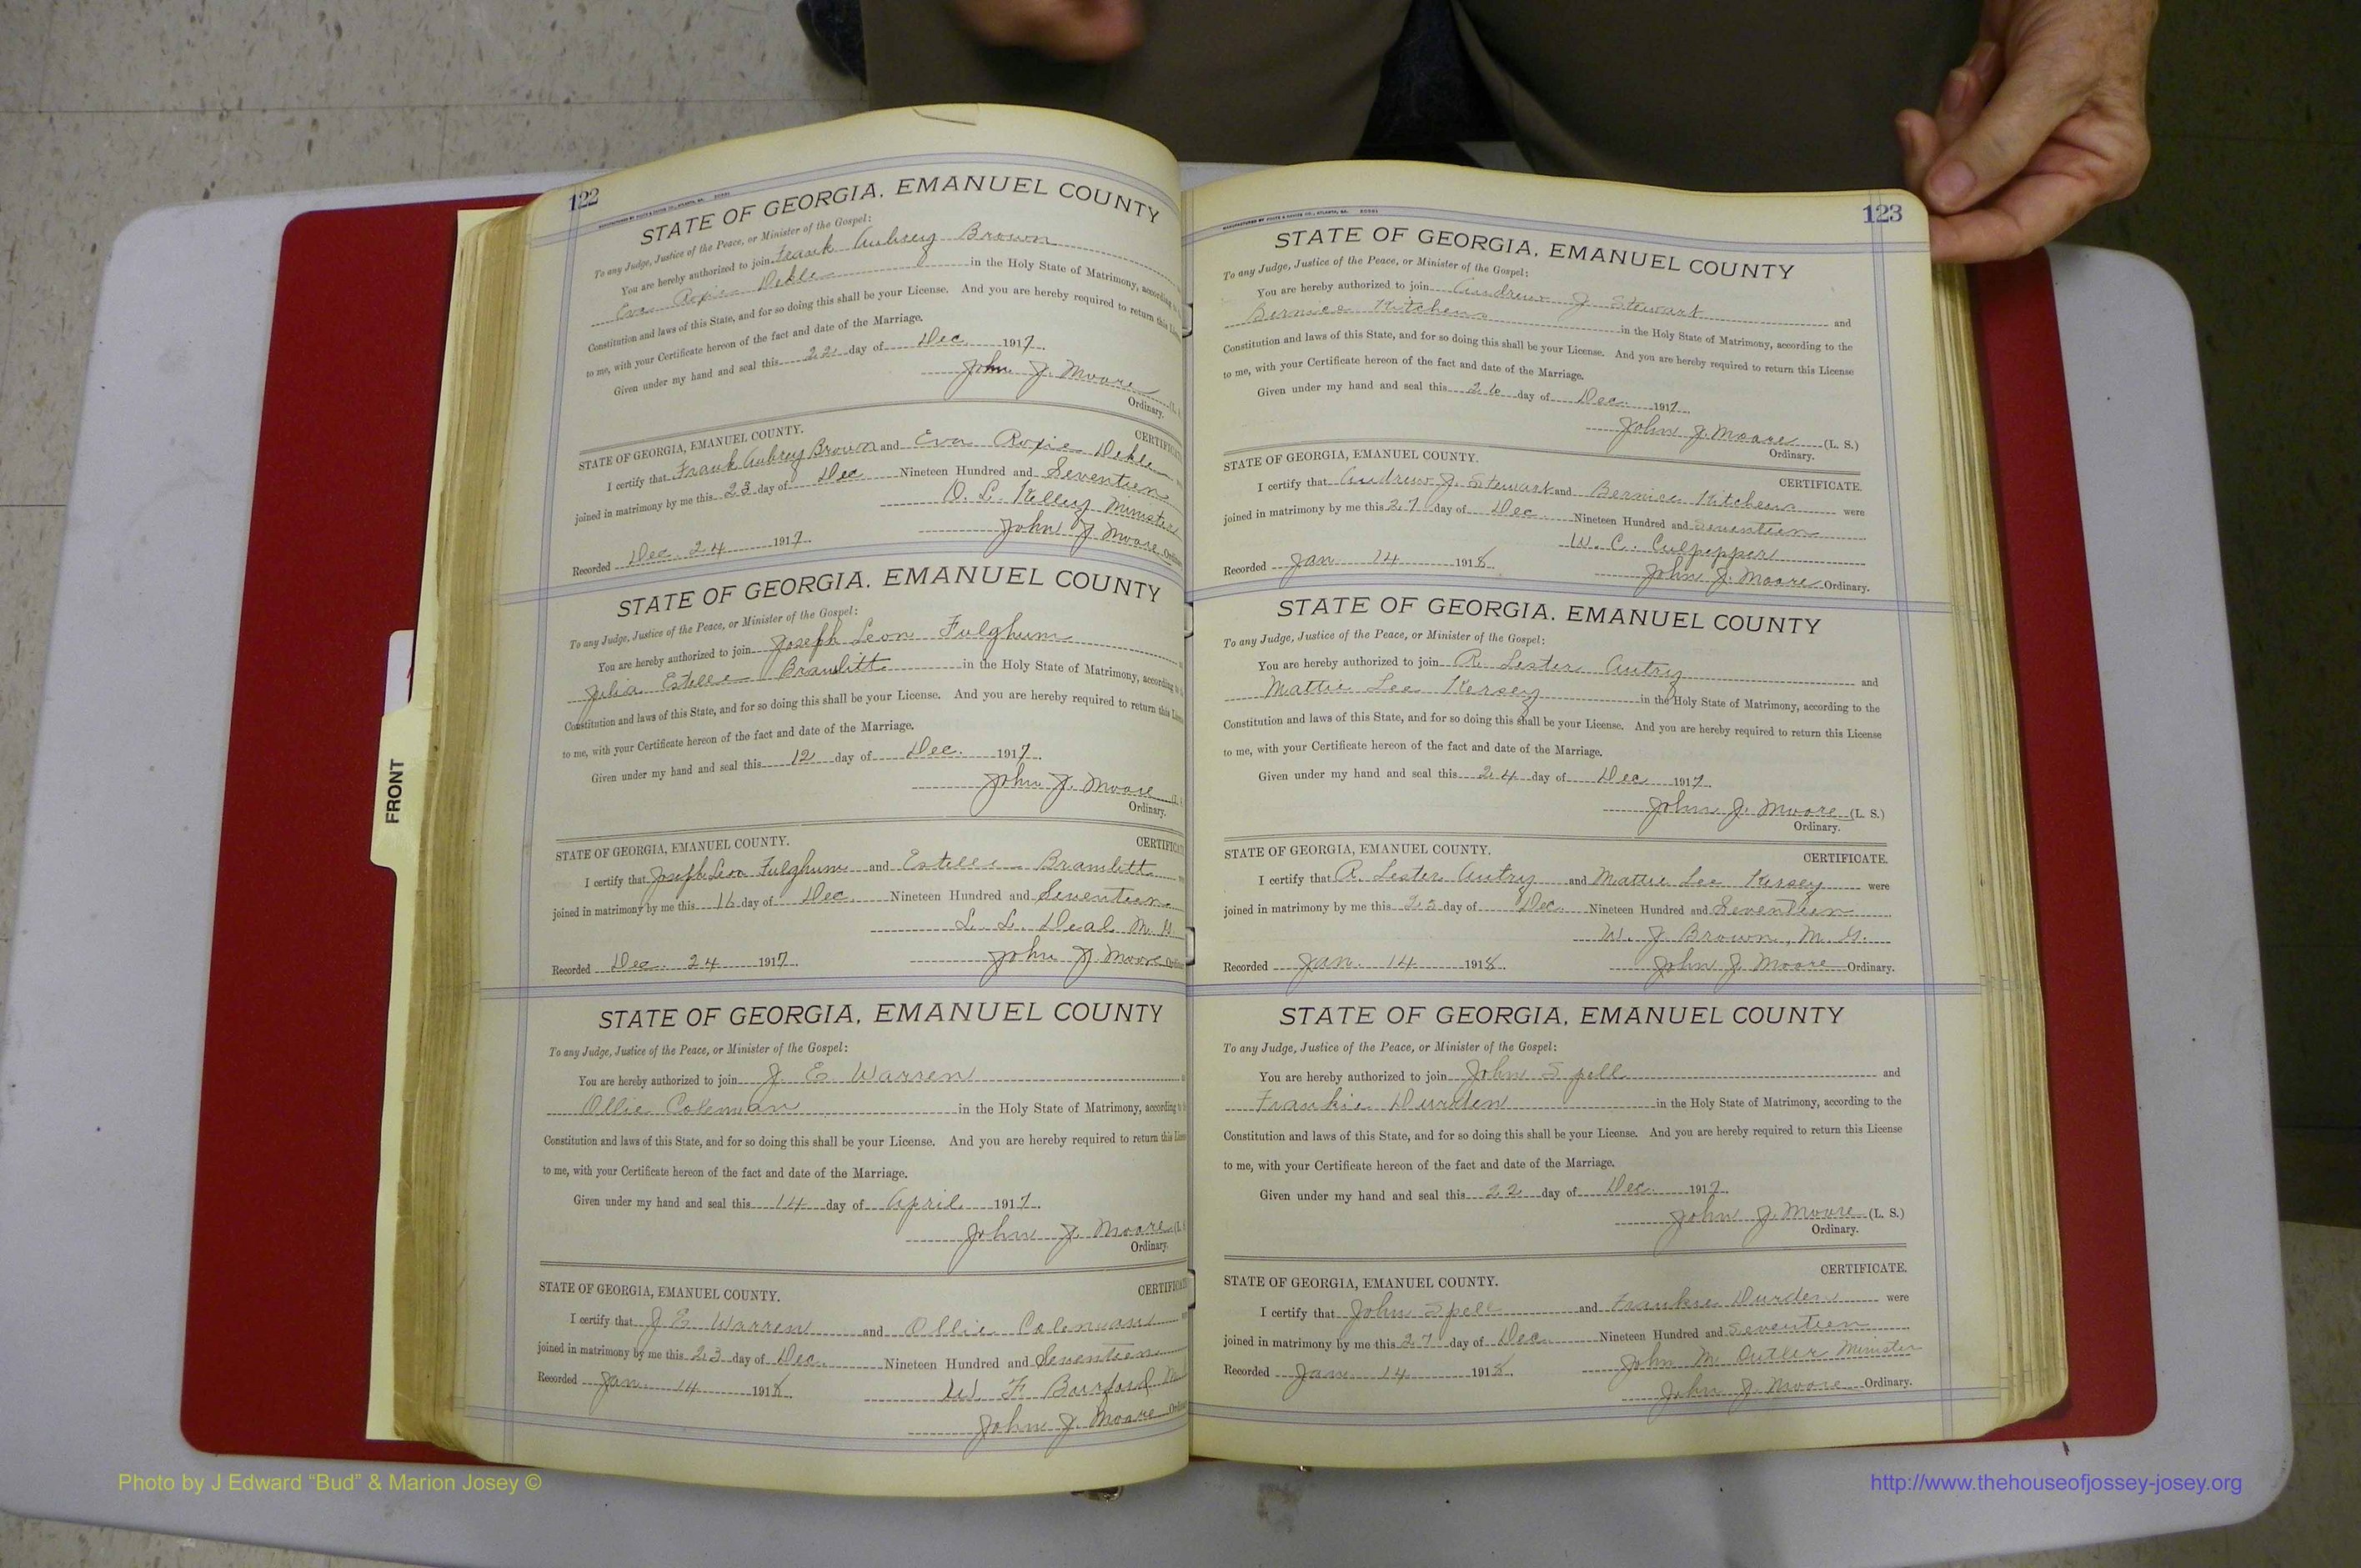 122
STATE OF GEORGIA, EMANUEL COUNTY
To any Judge, Justice of the Peace, or Minister of the Gospel:
You are hereby authorized to join Frank Aubrey Brown
Eva Roxie Dekle in the Holy State of Matrimony, according
Constitution and laws of this State, and for so doing this shall be your License. And you are hereby required to return this
to me, with your Certificate hereon of the fact and date of the Marriage.
Given under my hand and seal this 22 day of Dec 1917.
John J. Moore
Ordinary.
STATE OF GEORGIA, EMANUEL COUNTY.
I certify that Frank Aubrey Brown and Eva Roxie Dekle
joined in matrimony by me this 23 day of Dec Nineteen Hundred and Seventeen
Kelley Minister
Recorded Dec. 24 1917. John J. Moore
STATE OF GEORGIA, EMANUEL COUNTY
To any Judge, Justice of the Peace, or Minister of the Gospel:
You are hereby authorized to join Joseph Leon Fulghum
Julia Estelle Bramlitt in the Holy State of Matrimony, according
Constitution and laws of this State, and for so doing this shall be your License. And you are hereby required to return this
to me, with your Certificate hereon of the fact and date of the Marriage.
Given under my hand and seal this 12 day of Dec. 1917.
John J. Moore
Ordinary.
STATE OF GEORGIA, EMANUEL COUNTY.
I certify that Joseph Leon Fulghum and Estelle Bramlitt
joined in matrimony by me this day of Dec. Nineteen Hundred and Seventeen
L. L. Deal M. G.
Recorded Dec. 24 1917. John J. Moore
STATE OF GEORGIA, EMANUEL COUNTY
To any Judge, Justice of the Peace, or Minister of the Gospel:
You are hereby authorized to join J. E Warren
Ollie Coleman in the Holy State of Matrimony, according
Constitution and laws of this State, and for so doing this shall be your License. And you are hereby required to return this
to me, with your Certificate hereon of the fact and date of the Marriage.
Given under my hand and seal this 14 day of April 1917.
John J. Moore
Ordinary.
STATE OF GEORGIA, EMANUEL COUNTY.
I certify that J E Warren and Ollie Coleman
joined in matrimony by me this 23 day of Dec. Nineteen Hundred and Seventeen
Recorded Jan. 14 1918. W. F. Burford
John J. Moore
123
STATE OF GEORGIA, EMANUEL COUNTY
To any Judge, Justice of the Peace, or Minister of the Gospel:
You are hereby authorized to join Andrew J. Stewart and
Bernice Kitchens in the Holy State of Matrimony, according to the
Constitution and laws of this State, and for so doing this shall be your License. And you are hereby required to return this License
to me, with your Certificate hereon of the fact and date of the Marriage.
Given under my hand and seal this 26 day of Dec. 1917.
John J. Moore (L. S.)
Ordinary.
STATE OF GEORGIA, EMANUEL COUNTY.
CERTIFICATE.
I certify that Andrew J. Stewart and Bernice Kitchens were
joined in matrimony by me this 27 day of Dec. Nineteen Hundred and Seventeen
W. C. Culpepper
Recorded Jan 14 1918. John J. Moore Ordinary.
STATE OF GEORGIA, EMANUEL COUNTY
To any Judge, Justice of the Peace, or Minister of the Gospel:
You are hereby authorized to join R. Lester Autry and
Mattie Lee Kersey in the Holy State of Matrimony, according to the
Constitution and laws of this State, and for so doing this shall be your License. And you are hereby required to return this License
to me, with your Certificate hereon of the fact and date of the Marriage.
Given under my hand and seal this 24 day of Dec 1917.
John J. Moore (L. S.)
Ordinary.
STATE OF GEORGIA, EMANUEL COUNTY.
CERTIFICATE.
I certify that R. Lester Autry and Mattie Lee Kersey were
joined in matrimony by me this day of Dec. Nineteen Hundred and Seventeen
W. J Brown, M. G.
Recorded Jan. 14 1918. John J. Moore Ordinary.
STATE OF GEORGIA, EMANUEL COUNTY
To any Judge, Justice of the Peace, or Minister of the Gospel:
You are hereby authorized to join John Spell and
Frankie Durden in the Holy State of Matrimony, according to the
Constitution and laws of this State, and for so doing this shall be your License. And you are hereby required to return this License
to me, with your Certificate hereon of the fact and date of the Marriage.
Given under my hand and seal this 22 day of Dec. 1917.
John J. Moore (L. S.)
Ordinary.
CERTIFICATE.
STATE OF GEORGIA, EMANUEL COUNTY.
I certify that John Spell and Frankie Durden were
joined in matrimony by me this 27 day of Dec. Nineteen Hundred and Seventeen
John M. Outler Minister
Recorded Jan. 14 1918. John J. Moore Ordinary.
FRONT
Photo by J Edward “Bud” & Marion Josey ©
http://www.thehouseofjossey-josey.org